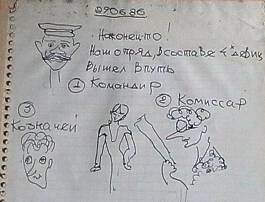 290686
Наконец-то!
Наш отряд, в составе 4 девиц
вышел в путь
① Командир
② Комиссар
③
Козначей